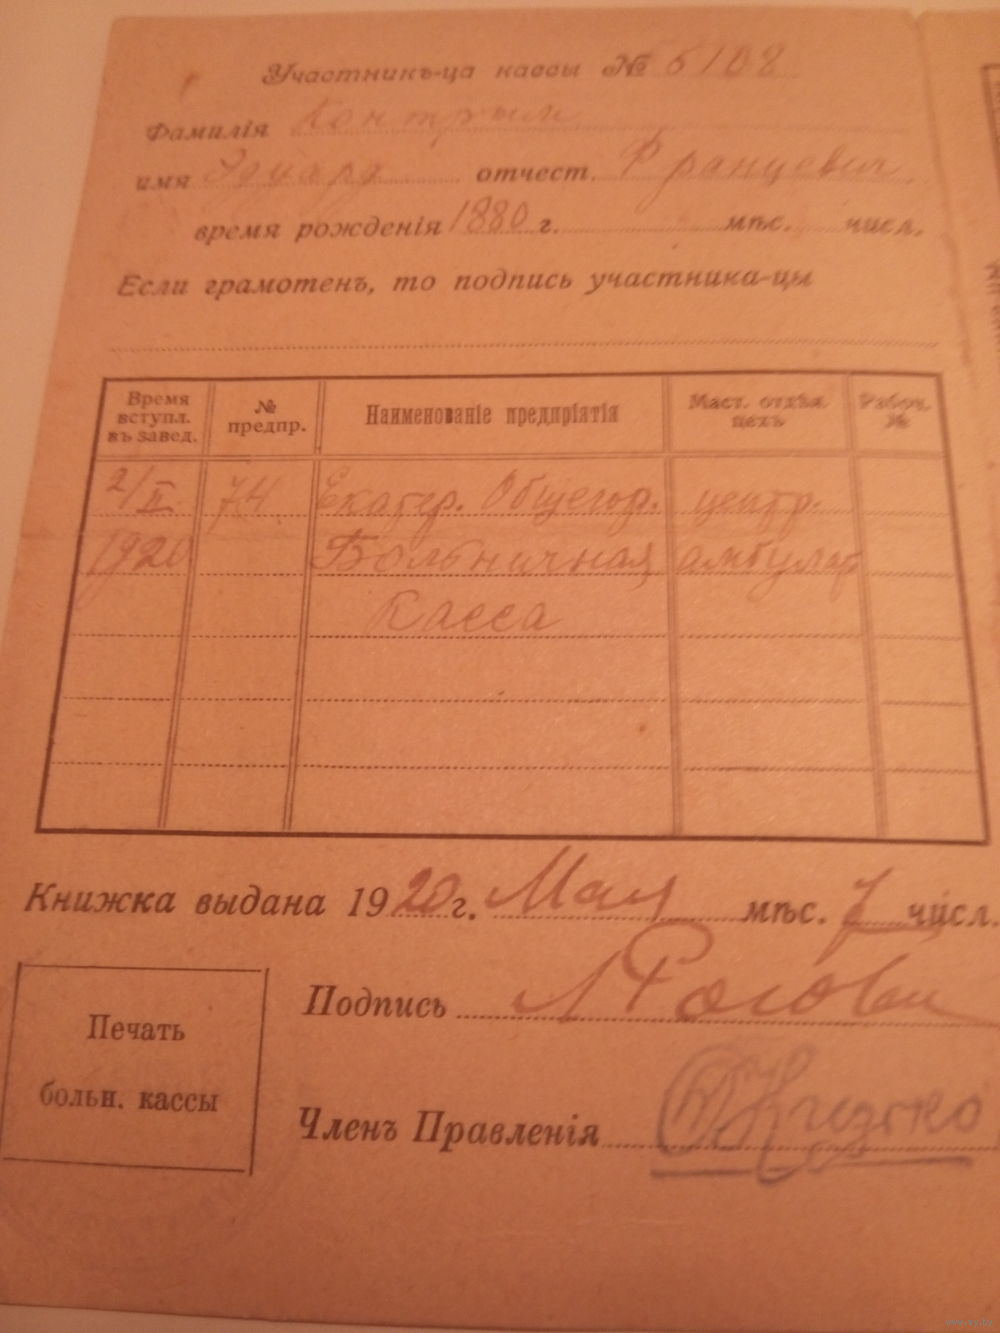 Участникъ-ца кассы № 6108
Фамилія Контрым
имя Эдуард отчест. Францевич
время рожденія 1880 г. мѣс. числ.
Если грамотенъ, то подпись участника-цы
Время вступл. въ завед. № предпр. Наименованіе предпріятія Маст. отдѣл. цехъ Рабоч. №
2/II 74 Екатер. Общегор. центр.
1920 Больничная амбулат
Касса
Книжка выдана 1920 г. Мая мѣс. 7 числ.
Подпись
Печать
больн. кассы
Членъ Правленія
www.ay.by